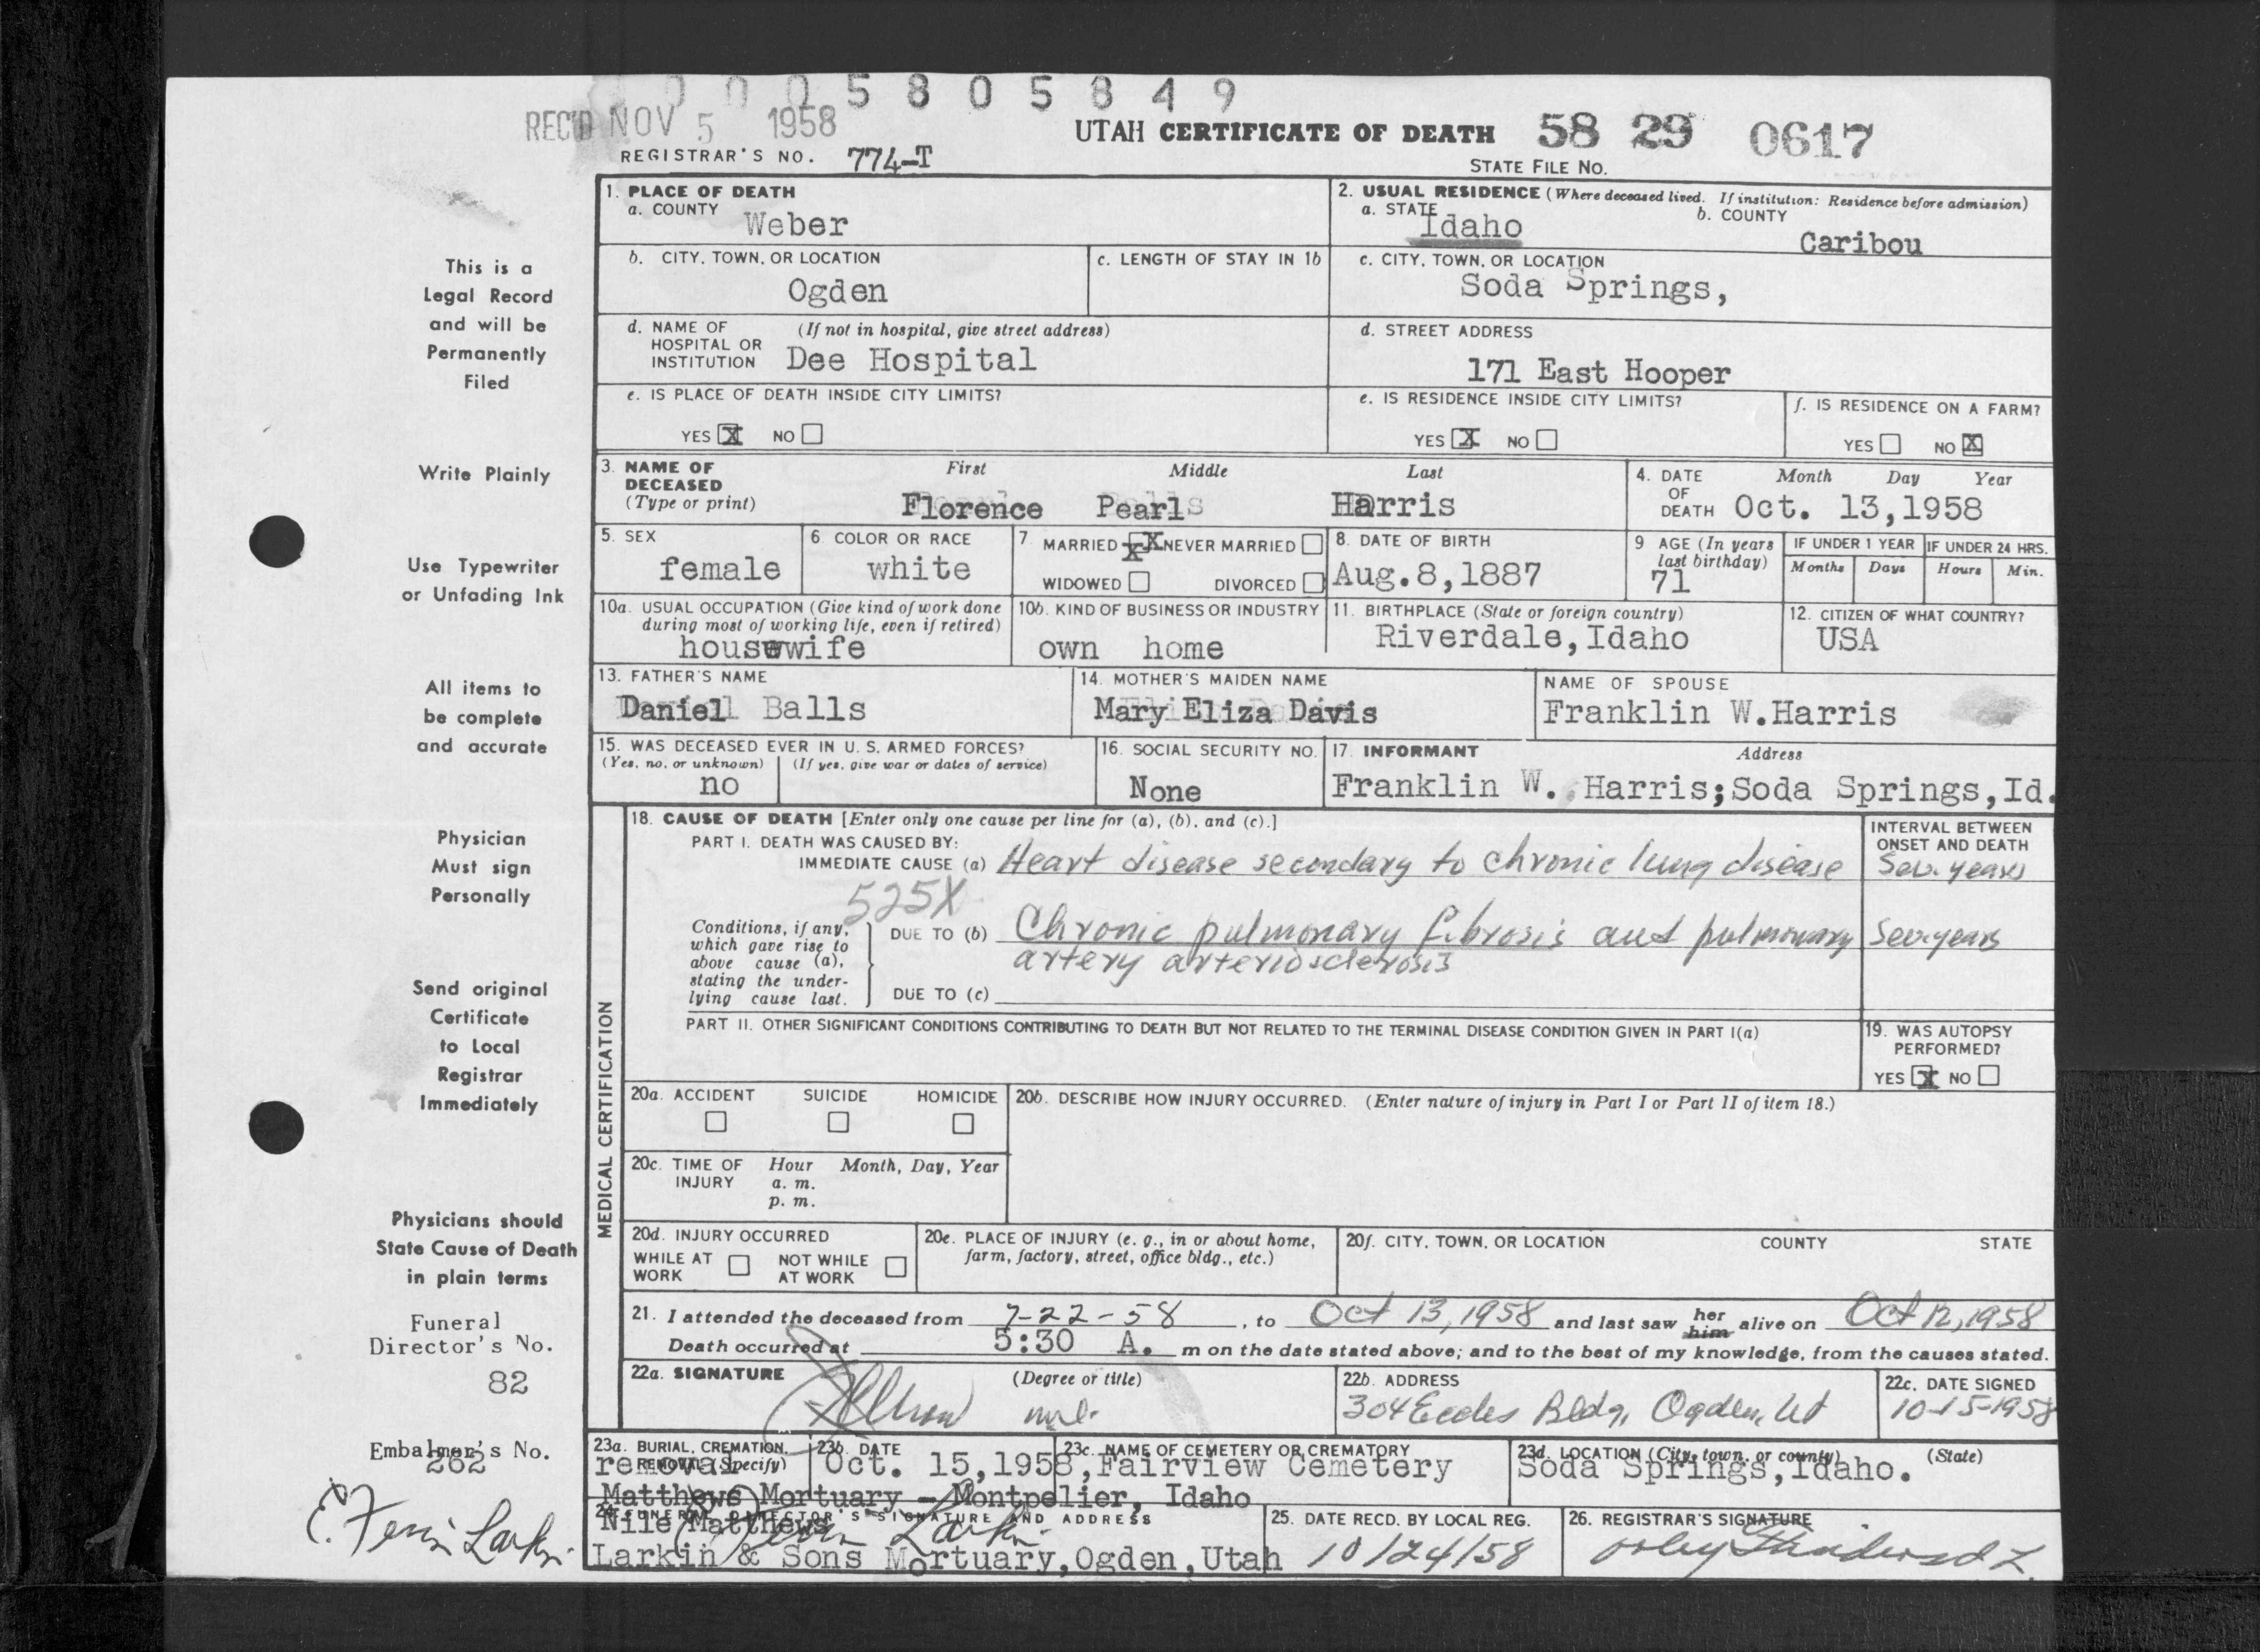 0005805849
REC'D NOV 5 1958
UTAH CERTIFICATE OF DEATH 58 29 0617
REGISTRAR'S NO. 774-T
STATE FILE NO.
This is a
Legal Record
and will be
Permanently
Filed
Write Plainly
Use Typewriter
or Unfading Ink
All items to
be complete
and accurate
Physician
Must sign
Personally
Send original
Certificate
to Local
Registrar
Immediately
Physicians should
State Cause of Death
in plain terms
Funeral
Director's No.
82
Embalmer's No.
262
E. Ferrin Larkin
1. PLACE OF DEATH
a. COUNTY
Weber
2. USUAL RESIDENCE (Where deceased lived. If institution: Residence before admission)
a. STATE
Idaho
b. COUNTY
Caribou
b. CITY, TOWN, OR LOCATION
Ogden
c. LENGTH OF STAY IN 1b
c. CITY, TOWN, OR LOCATION
Soda Springs,
d. NAME OF HOSPITAL OR INSTITUTION
(If not in hospital, give street address)
Dee Hospital
d. STREET ADDRESS
171 East Hooper
e. IS PLACE OF DEATH INSIDE CITY LIMITS?
YES X NO
e. IS RESIDENCE INSIDE CITY LIMITS?
YES X NO
f. IS RESIDENCE ON A FARM?
YES NO X
3. NAME OF DECEASED
(Type or print)
First Middle Last
Florence Pearl Harris
4. DATE OF DEATH
Month Day Year
Oct. 13,1958
5. SEX
female
6. COLOR OR RACE
white
7. MARRIED X NEVER MARRIED
WIDOWED DIVORCED
8. DATE OF BIRTH
Aug.8,1887
9. AGE (In years last birthday)
71
IF UNDER 1 YEAR
Months Days
IF UNDER 24 HRS.
Hours Min.
10a. USUAL OCCUPATION (Give kind of work done during most of working life, even if retired)
housewife
10b. KIND OF BUSINESS OR INDUSTRY
own home
11. BIRTHPLACE (State or foreign country)
Riverdale,Idaho
12. CITIZEN OF WHAT COUNTRY?
USA
13. FATHER'S NAME
Daniel Balls
14. MOTHER'S MAIDEN NAME
Mary Eliza Davis
NAME OF SPOUSE
Franklin W.Harris
15. WAS DECEASED EVER IN U. S. ARMED FORCES?
(Yes, no, or unknown) (If yes, give war or dates of service)
no
16. SOCIAL SECURITY NO.
None
17. INFORMANT Address
Franklin W. Harris;Soda Springs,Id.
MEDICAL CERTIFICATION
18. CAUSE OF DEATH [Enter only one cause per line for (a), (b), and (c).]
INTERVAL BETWEEN ONSET AND DEATH
PART I. DEATH WAS CAUSED BY:
IMMEDIATE CAUSE (a) Heart disease secondary to chronic lung disease Sev. years
525X
Conditions, if any, which gave rise to above cause (a), stating the underlying cause last.
DUE TO (b) Chronic pulmonary fibrosis and pulmonary Sev. years
artery arteriosclerosis
DUE TO (c)
PART II. OTHER SIGNIFICANT CONDITIONS CONTRIBUTING TO DEATH BUT NOT RELATED TO THE TERMINAL DISEASE CONDITION GIVEN IN PART I(a)
19. WAS AUTOPSY PERFORMED?
YES X NO
20a. ACCIDENT SUICIDE HOMICIDE
20b. DESCRIBE HOW INJURY OCCURRED. (Enter nature of injury in Part I or Part II of item 18.)
20c. TIME OF INJURY
Hour Month, Day, Year
a. m.
p. m.
20d. INJURY OCCURRED
WHILE AT WORK NOT WHILE AT WORK
20e. PLACE OF INJURY (e. g., in or about home, farm, factory, street, office bldg., etc.)
20f. CITY, TOWN, OR LOCATION COUNTY STATE
21. I attended the deceased from 7-22-58, to Oct 13, 1958 and last saw her him alive on Oct 12, 1958
Death occurred at 5:30 A. m on the date stated above; and to the best of my knowledge, from the causes stated.
22a. SIGNATURE (Degree or title)
22b. ADDRESS
304 Eccles Bldg, Ogden, Ut
22c. DATE SIGNED
10-15-1958
23a. BURIAL, CREMATION, REMOVAL (Specify)
removal
23b. DATE
Oct. 15,1958,
23c. NAME OF CEMETERY OR CREMATORY
Fairview Cemetery
23d. LOCATION (City, town, or county) (State)
Soda Springs,Idaho.
Matthews Mortuary - Montpelier, Idaho
24. FUNERAL DIRECTOR'S SIGNATURE AND ADDRESS
Nile Matthews
Larkin & Sons Mortuary,Ogden,Utah
25. DATE RECD. BY LOCAL REG.
10/24/58
26. REGISTRAR'S SIGNATURE